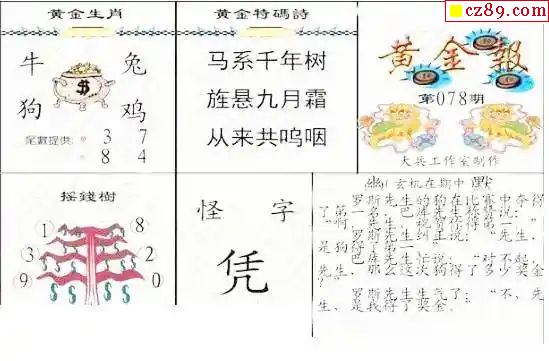 cz89.com
黄金生肖
牛 兔
狗 鸡
尾數提供: 3 7
8 4
黄金特碼詩
马系千年树
旌悬九月霜
从来共呜咽
黄金報
第078期
大兵工作室制作
摇錢樹
1 8
3 2
9 0
怪 字
凭
幽 玄机在期中 默
罗斯先生的狗在比赛中夺得
了第一名，巴库先生称赞说：
是狗得了第一。”
巴库先生忙说：“对不起，
先生，那么这次狗得了多少奖金
？”
罗斯先生生气了：“不，先
生，是我得了奖金。”